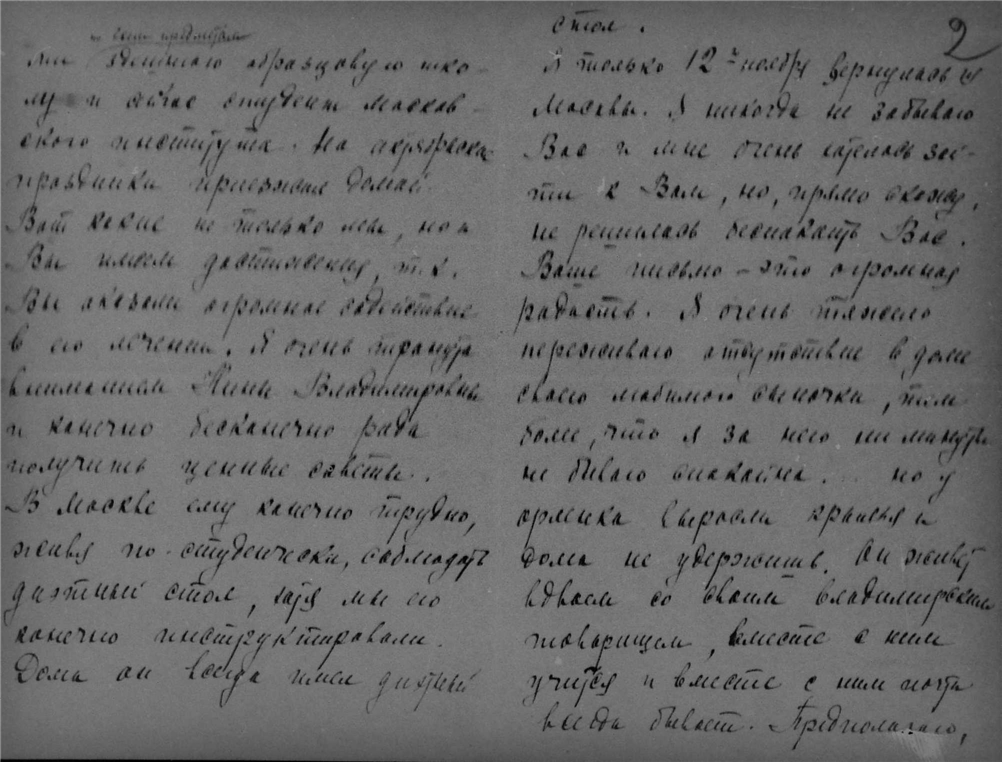 ми здешнюю образцовую шко-
лу и сейчас студент Москов-
ского института. На октябрьские
праздники приезжал домой.
Вот какие не только мы, но и
Вы имеем достижения, т.к.
Вы оказали огромное содействие
в его лечении. Я очень тронута
вниманием Нины Владимировны
и конечно бесконечно рада
получить ценные советы.
В Москве ему конечно трудно,
живя по-студенчески, соблюдать
диэтный стол, хотя мы его
конечно инструктировали.
Дома он всегда имел диэтный
2
стол.
Я только 12го ноября вернулась из
Москвы. Я никогда не забываю
Вас и мне очень хотелось зай-
ти к Вам, но, прямо скажу,
не решилась беспокоить Вас.
Ваше письмо – это огромная
радость. Я очень тяжело
переживаю отсутствие в доме
своего любимого сыночка, тем
более, что я за него ни минуты
не бываю спокойна... но у
орленка выросли крылья и
дома не удержишь. Он живет
вдвоем со своим владимирским
товарищем, вместе с ним
учится и вместе с ним почти
всегда бывает. Предполагаю,